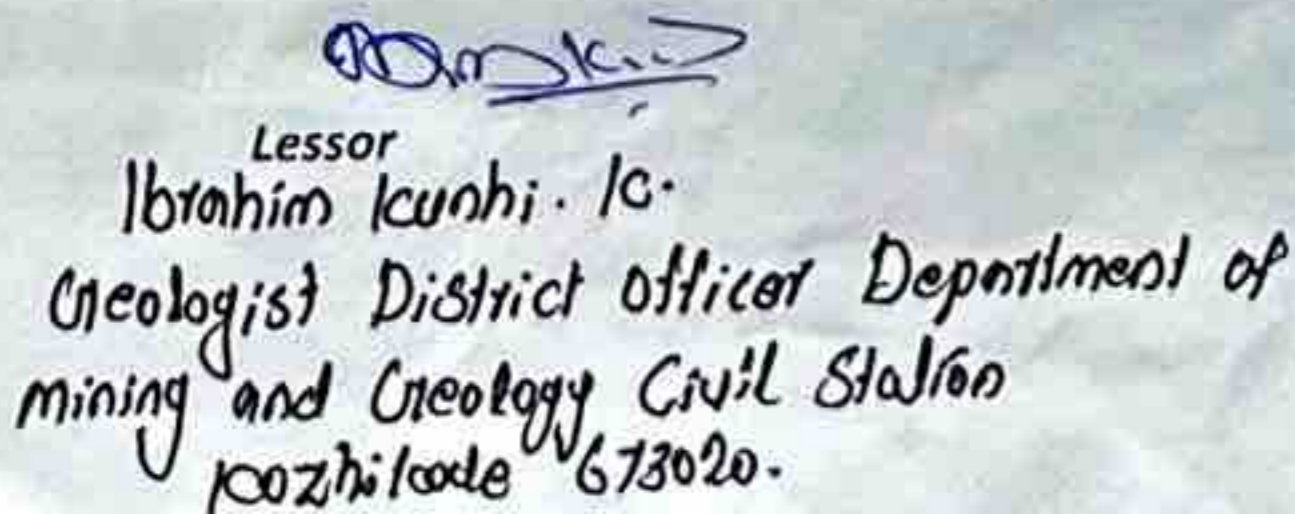 Lessor
Ibrahim Kunhi. K.
Geologist District Officer Department of
mining and Geology Civil Station
Kozhikode 673020.